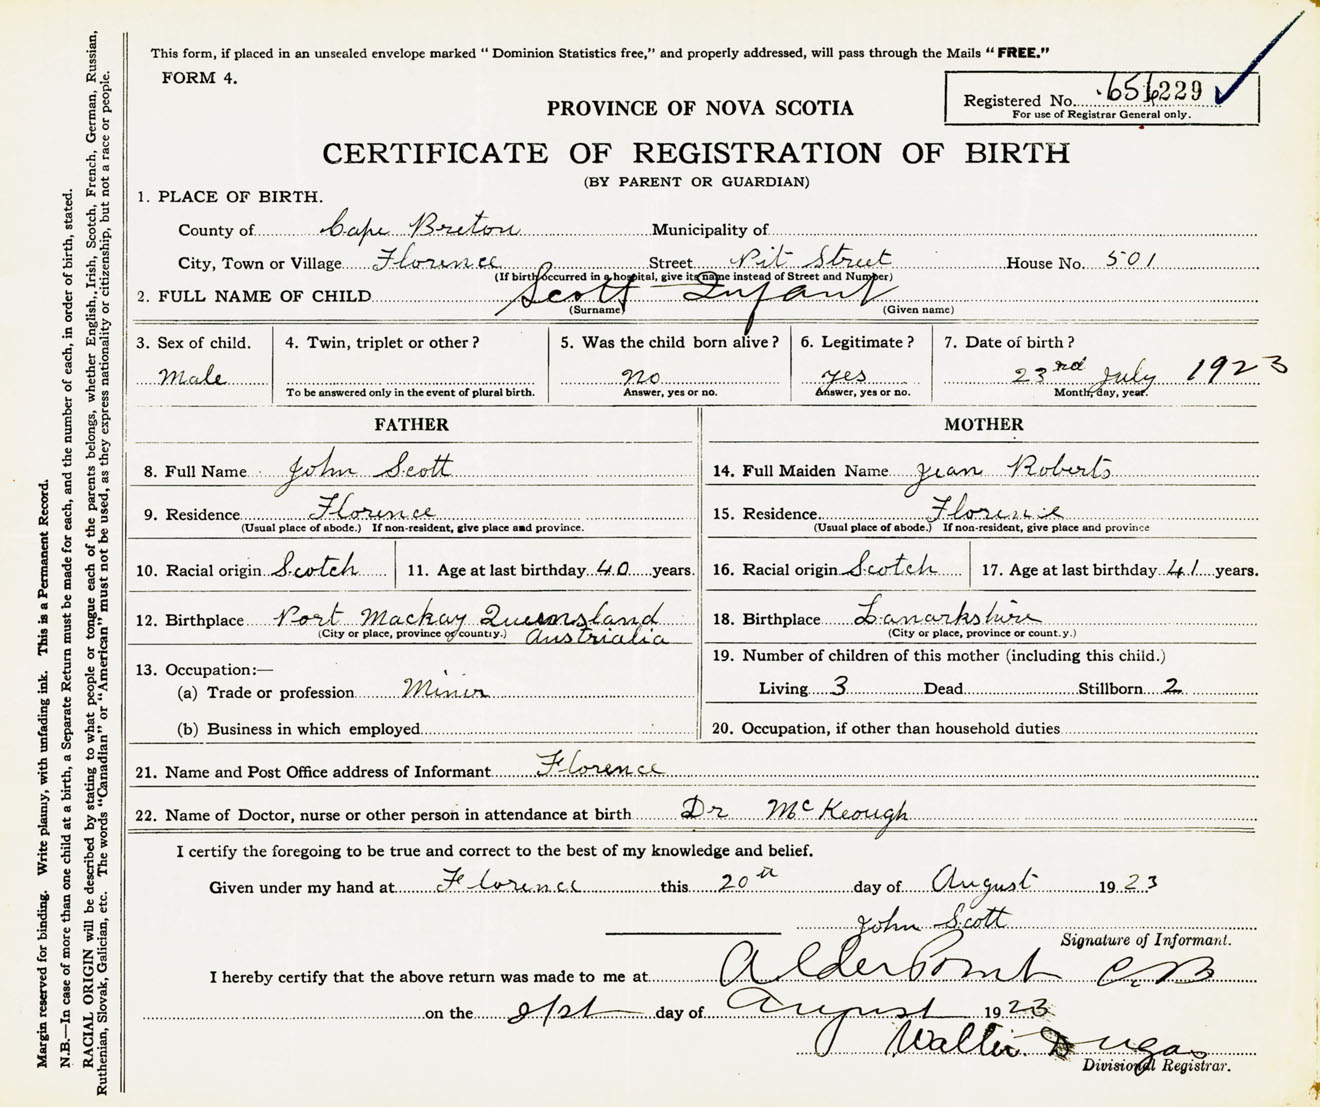 This form, if placed in an unsealed envelope marked “Dominion Statistics free,” and properly addressed, will pass through the Mails “FREE.”
FORM 4.
Registered No. 229
For use of Registrar General only.
PROVINCE OF NOVA SCOTIA
CERTIFICATE OF REGISTRATION OF BIRTH
(BY PARENT OR GUARDIAN)
1. PLACE OF BIRTH.
County of Cape Breton Municipality of
City, Town or Village Florence Street Pit Street House No. 501
(If birth occurred in a hospital, give its name instead of Street and Number)
2. FULL NAME OF CHILD Scott Infant
(Surname) (Given name)
3. Sex of child. 4. Twin, triplet or other? 5. Was the child born alive? 6. Legitimate? 7. Date of birth?
Male no yes 23rd July 1923
To be answered only in the event of plural birth. Answer, yes or no. Answer, yes or no. Month, day, year.
FATHER MOTHER
8. Full Name John Scott 14. Full Maiden Name Jean Roberts
9. Residence Florence 15. Residence Florence
(Usual place of abode.) If non-resident, give place and province. (Usual place of abode.) If non-resident, give place and province
10. Racial origin Scotch 11. Age at last birthday 40 years. 16. Racial origin Scotch 17. Age at last birthday 41 years.
12. Birthplace Port Mackay Queensland 18. Birthplace Lanarkshire
(City or place, province or country.) Austrialia (City or place, province or count.y.)
13. Occupation:— 19. Number of children of this mother (including this child.)
(a) Trade or profession Miner Living 3 Dead Stillborn 2
(b) Business in which employed 20. Occupation, if other than household duties
21. Name and Post Office address of Informant Florence
22. Name of Doctor, nurse or other person in attendance at birth Dr McKeough
I certify the foregoing to be true and correct to the best of my knowledge and belief.
Given under my hand at Florence this 20th day of August 1923
John Scott
Signature of Informant.
I hereby certify that the above return was made to me at Alder Point C.B
on the 21st day of August 1923
Walter Dugas
Divisional Registrar.
Margin reserved for binding. Write plainly, with unfading ink. This is a Permanent Record.
N.B.—In case of more than one child at a birth, a Separate Return must be made for each, and the number of each, in order of birth, stated.
RACIAL ORIGIN will be described by stating to what people or tongue each of the parents belongs, whether English, Irish, Scotch, French, German, Russian,
Ruthenian, Slovak, Galician, etc. The words “Canadian” or “American” must not be used, as they express nationality or citizenship, but not a race or people.